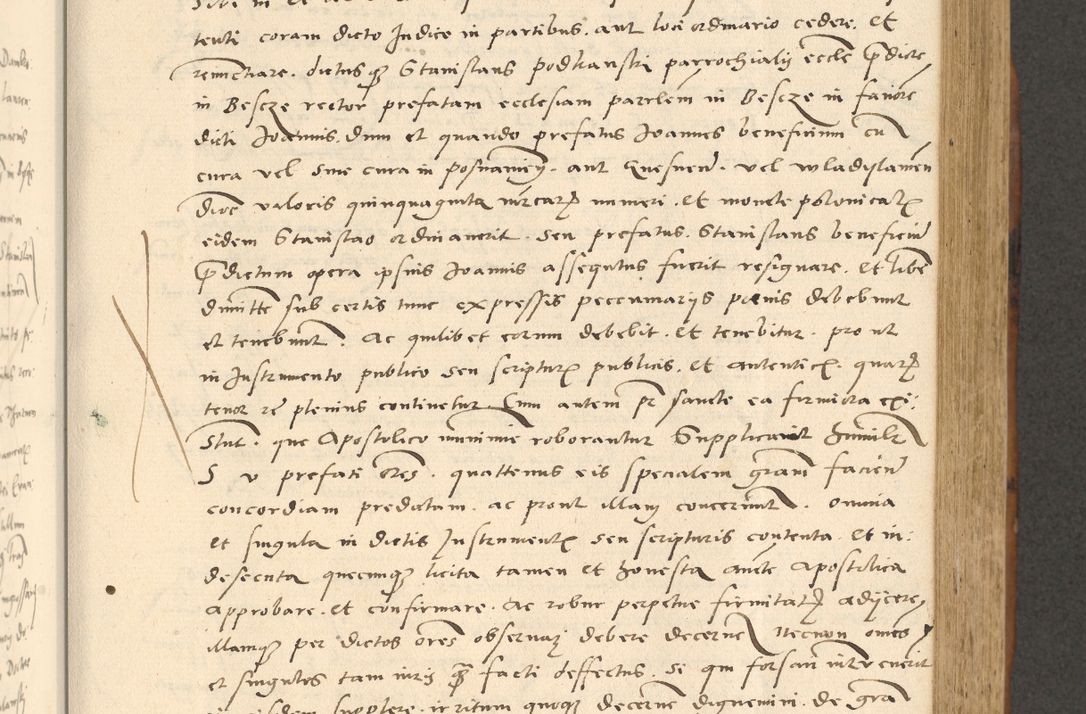 tenti coram dicto Judice in partibus. aut loci ordinario cedere. et
renunctiare. dictusq Stanislaus podlianski parrochialis eccle pdicte
in Bescze rector prefatam ecclesiam parrlem in Bescze in favore
dicti Joannis. dum et quando prefatus Joannes beneficium cu
cura vel sine cura in posnanien. aut Gnesnen. vel wladislavien
dioc valoris quinquaginta mrcar numeri. et monete polonical
eidem Stanislao ordinaverit. seu prefatus. Stanislaus beneficiu
pdictum opera ipsius Joannis assequtus fuerit resignare. et libe
dimitte sub certis tunc expressis peccuniarijs penis debebunt
et tenebunt. Ac quilibet eorum debebit. et tenebitur. prout
in Instrumento publico seu scriptur publicis. et autentic. quar
tenor re plenius continetur. Cum autem pr sancte ea firmiora exi:
stut. que Apostolico munimie roborantur Supplicant humilr
S v prefati ores. quattenus eis specialem gram facien
concordiam predictam. ac prout illam concernut. omnia
et singula in dictis Instrument seu scripturis contenta. et in:
desecuta quecumq licita tamen et honesta aucte Apostolica
approbare. et confirmare. Ac robur perpetue firmitatis adijcere,
illamq per dictos ores observari debere decerne Necnon omes
et singulos tam iuris q facti deffectus. Si qui forsan intervenerit
supplere. irritum quoq decerne dignemini. de gra